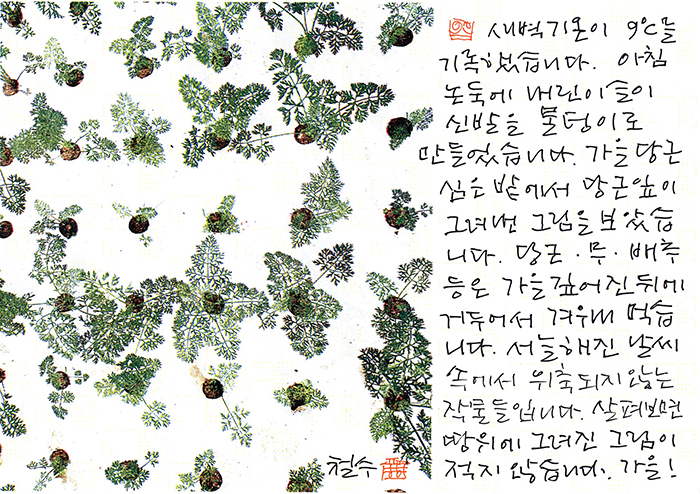 새벽기온이 9℃를
기록하였습니다. 아침
논둑에 내린이슬이
신발을 물텅이로
만들었습니다. 가을당근
심은 밭에서 당근잎이
그려낸 그림을 보았습
니다. 당근·무·배추
등은 가을깊어진뒤에
거두어서 겨우내 먹습
니다. 서늘해진 날씨
속에서 위축되지않는
작물들입니다. 살펴보면
땅위에 그려진 그림이
적지 않습니다. 가을!
철수